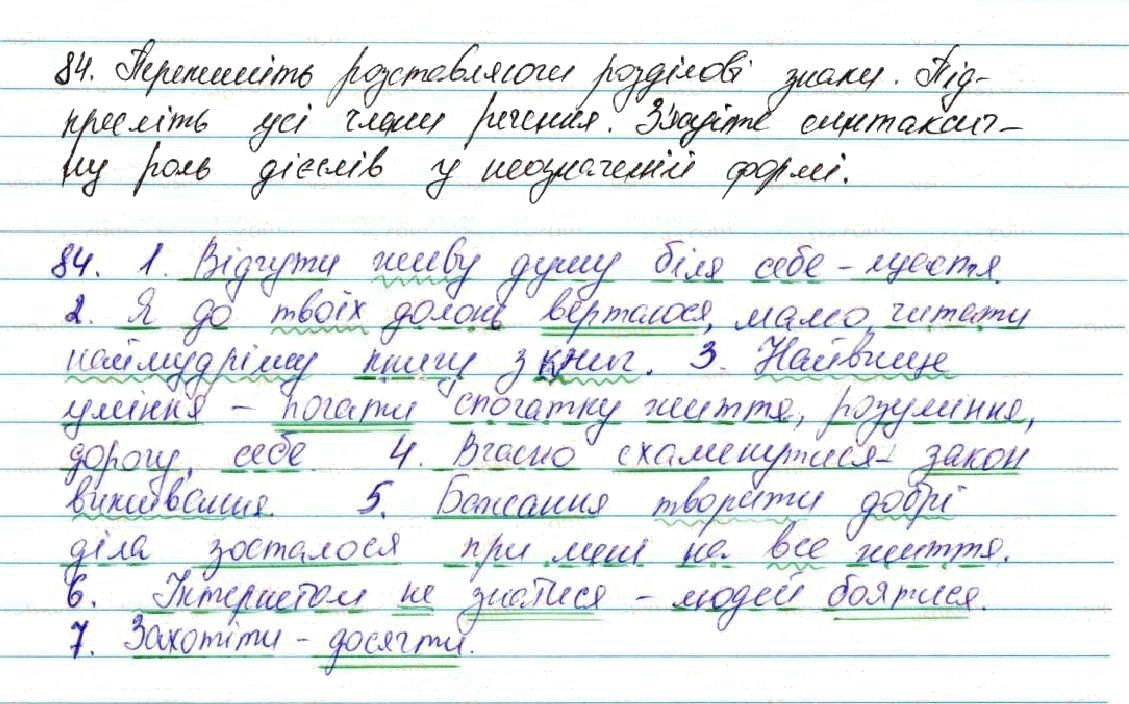 84. Перепишіть розставляючи розділові знаки. Під-
кресліть усі члени речення. З'ясуйте синтаксич-
ну роль дієслів у неозначеній формі.
84. 1. Відчути живу душу біля себе – щастя.
2. Я до твоїх долонь верталося, мамо, читати
наймудрішу книгу з книг. 3. Найвище
уміння – почати спочатку життя, розуміння,
дорогу, себе 4. Вчасно схаменутися – закон
виживання. 5. Бажання творити добрі
діла зосталося при мені на все життя.
6. Інтернетом не знатися – людей боятися.
7. Захотіти – досягти.